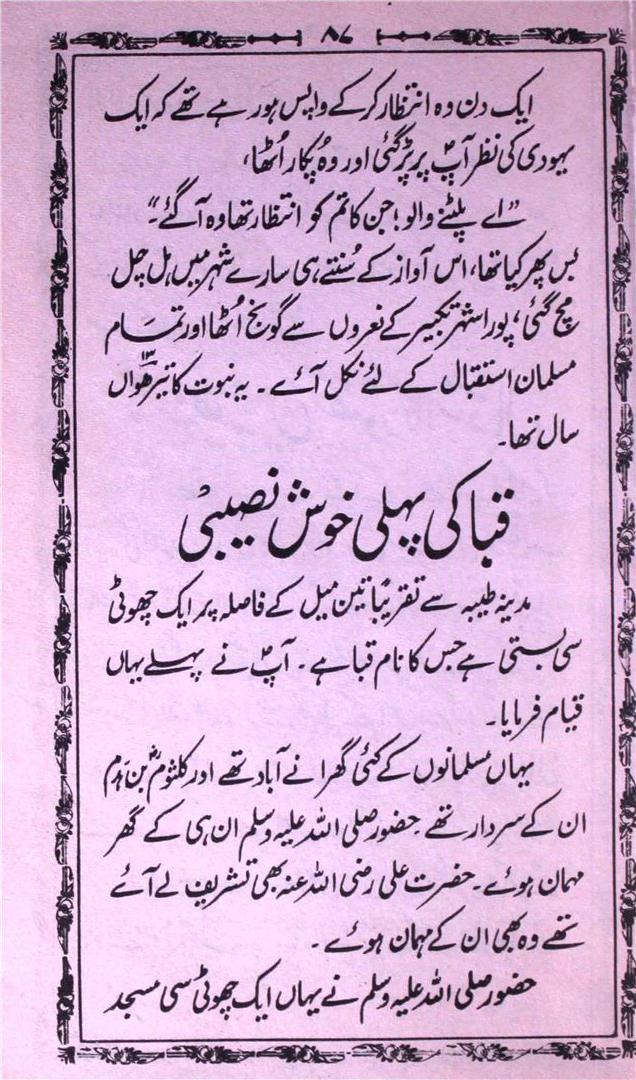 ۸۷
ایک دن وہ انتظار کرکے واپس ہورہے تھے کہ ایک
یہودی کی نظر آپؐ پر پڑ گئی اور وہ پکار اُٹھا،
”اے پلٹنے والو! جن کا تم کو انتظار تھا وہ آگئے“۔
بس پھر کیا تھا، اس آواز کے سُنتے ہی سارے شہر میں ہل چل
مچ گئی، پورا شہر تکبیر کے نعروں سے گونج اُٹھا اور تمام
مسلمان استقبال کے لئے نکل آئے۔ یہ نبوت کا تیرھواں ۱۳
سال تھا۔
قبا کی پہلی خوش نصیبی
مدینہ طیبہ سے تقریباً تین میل کے فاصلہ پر ایک چھوٹی
سی بستی ہے جس کا نام قبا ہے۔ آپؐ نے پہلے یہاں
قیام فرمایا۔
یہاں مسلمانوں کے کئی گھرانے آباد تھے اور کلثومؓ بن ہدم
ان کے سردار تھے۔ حضور صلی اللہ علیہ وسلم ان ہی کے گھر
مہمان ہوئے۔ حضرت علی رضی اللہ عنہ بھی تشریف لے آئے
تھے وہ بھی ان کے مہمان ہوئے۔
حضور صلی اللہ علیہ وسلم نے یہاں ایک چھوٹی سی مسجد